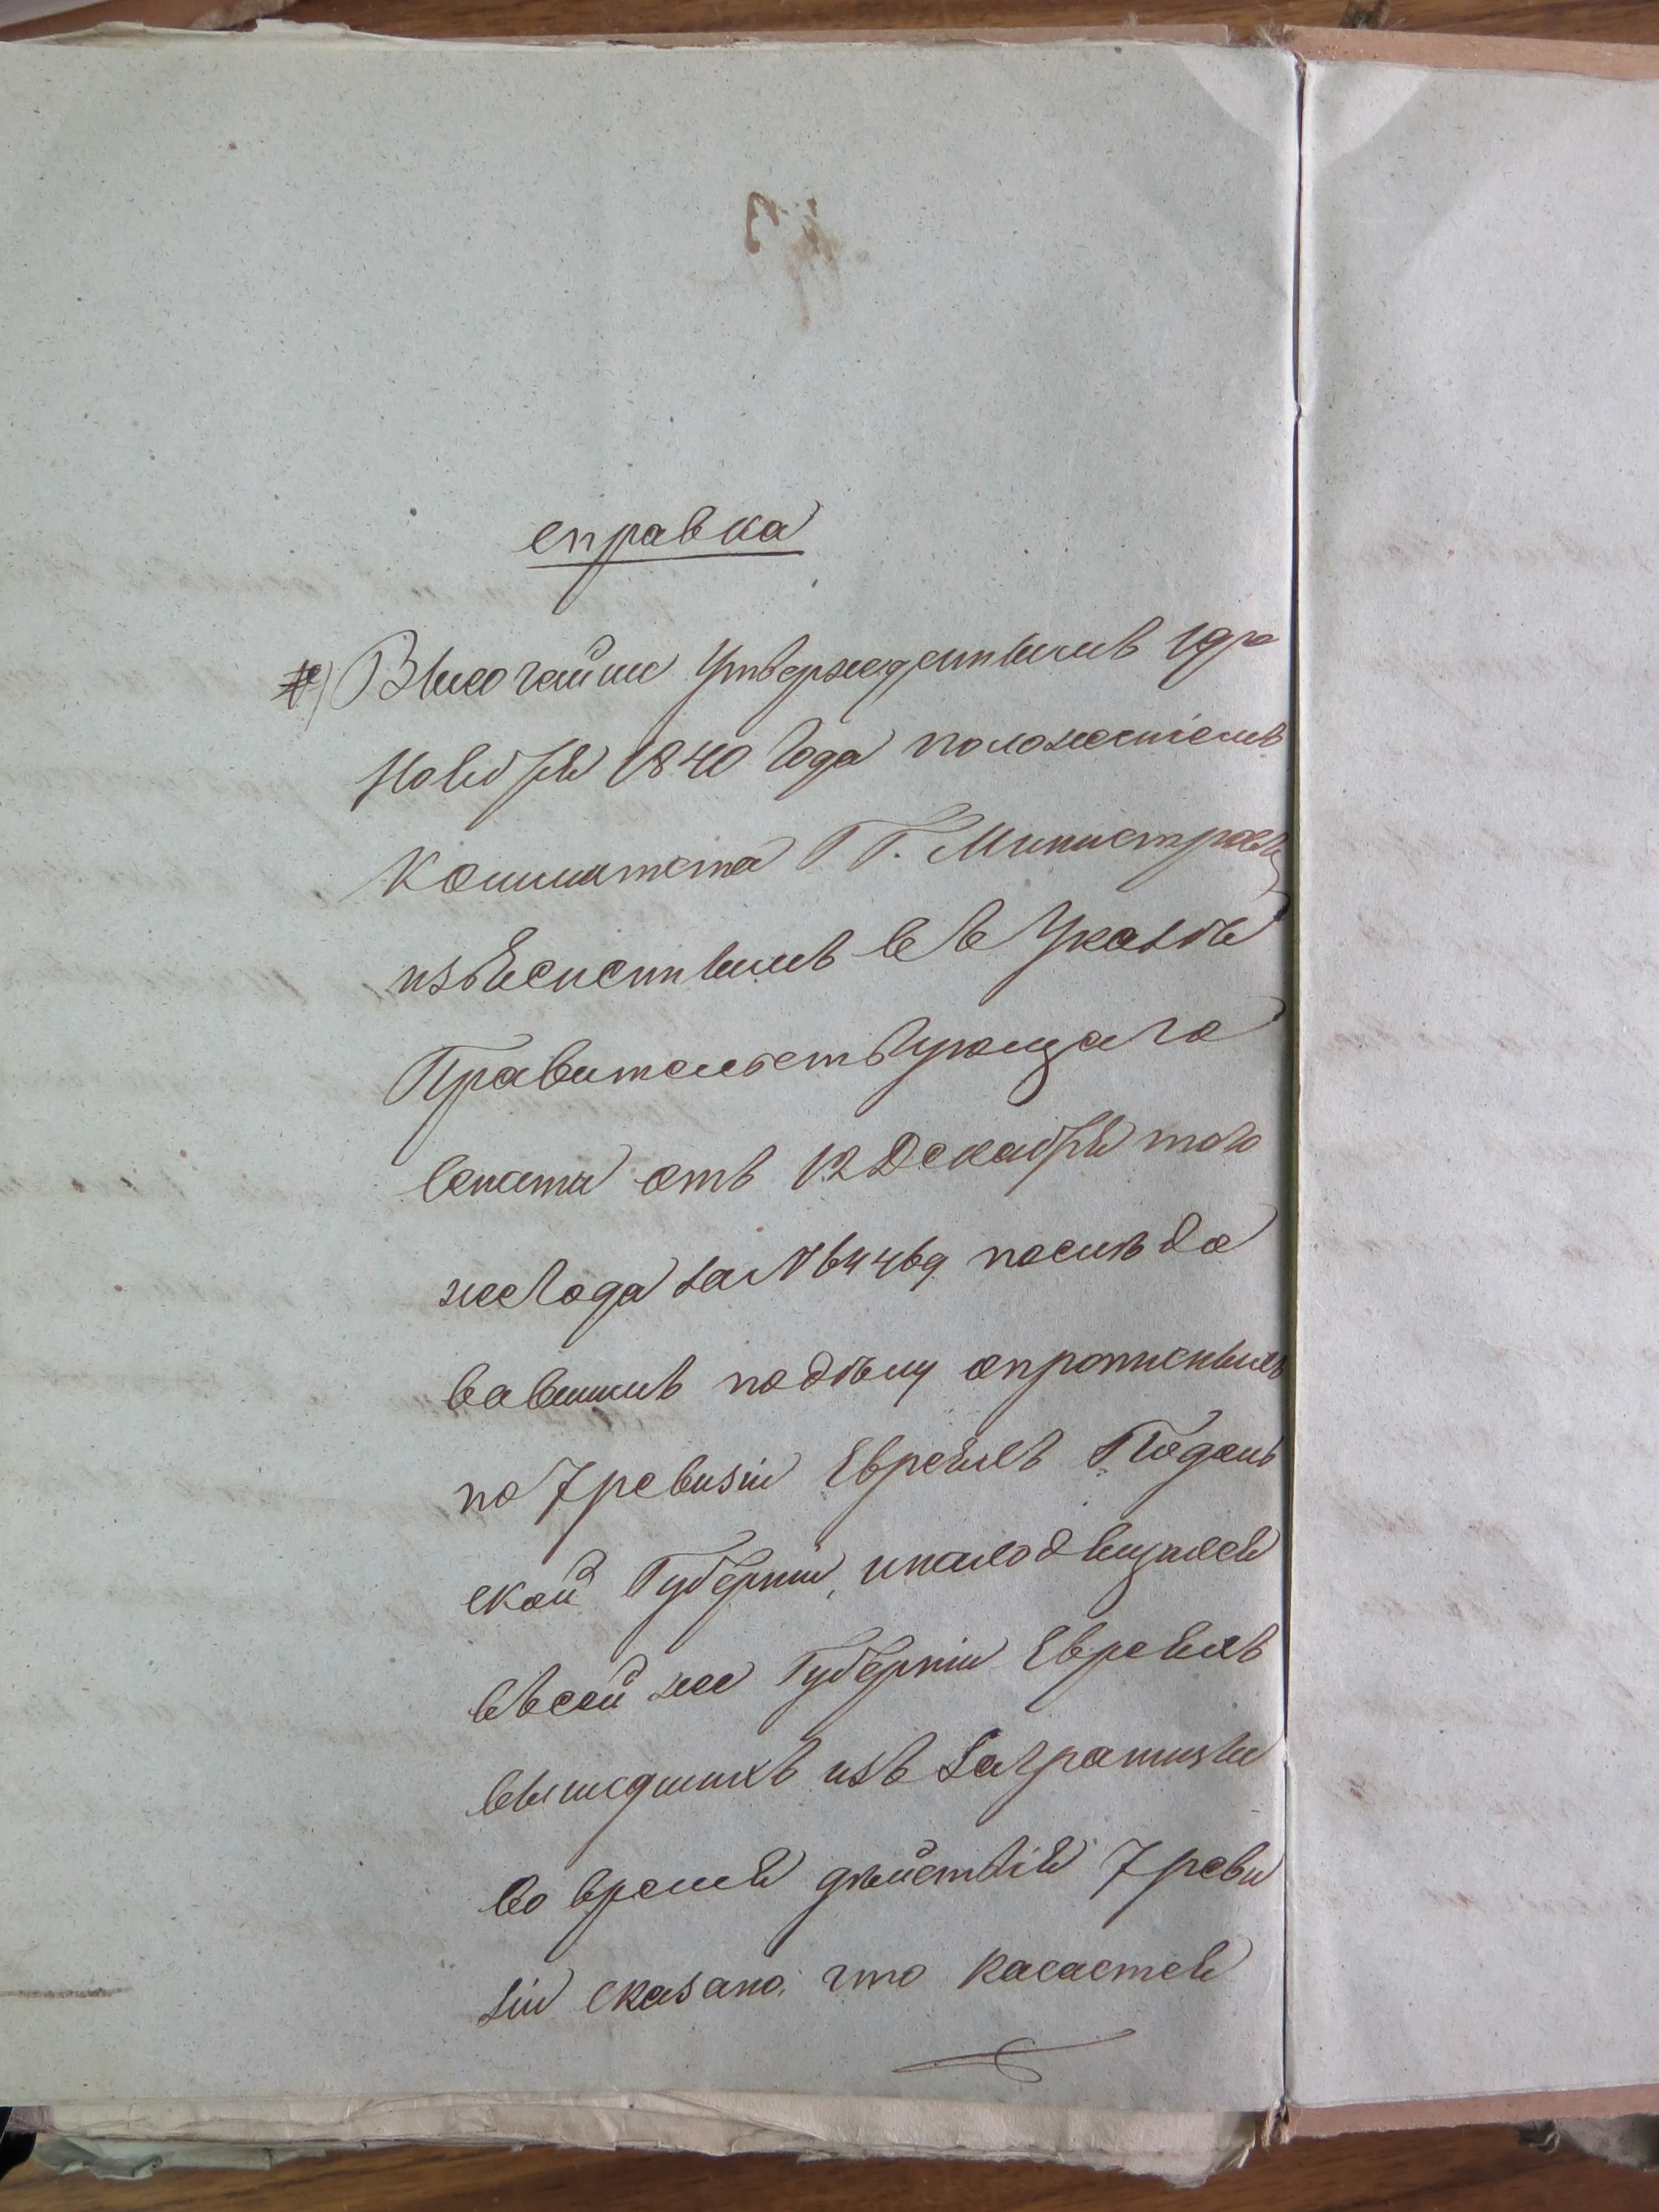 справка
Высочайше Утвержденнымъ 19го
Ноября 1840 Года положеніемъ
Комитета ГГ. Министровъ
изъясненнымъ въ Указѣ
Правительствующаго
Сената отъ 12 Декабря того
же Года за № 64469 послѣдо
вавшимъ по дѣлу о прописныхъ
по 7 ревизіи Евреяхъ Подоль
ской Губерніи, и находящихся
въ сей же Губерніи Евреяхъ
вышедшихъ изъ Заграницы
во время дѣйствія 7 реви
зіи сказано, что касается